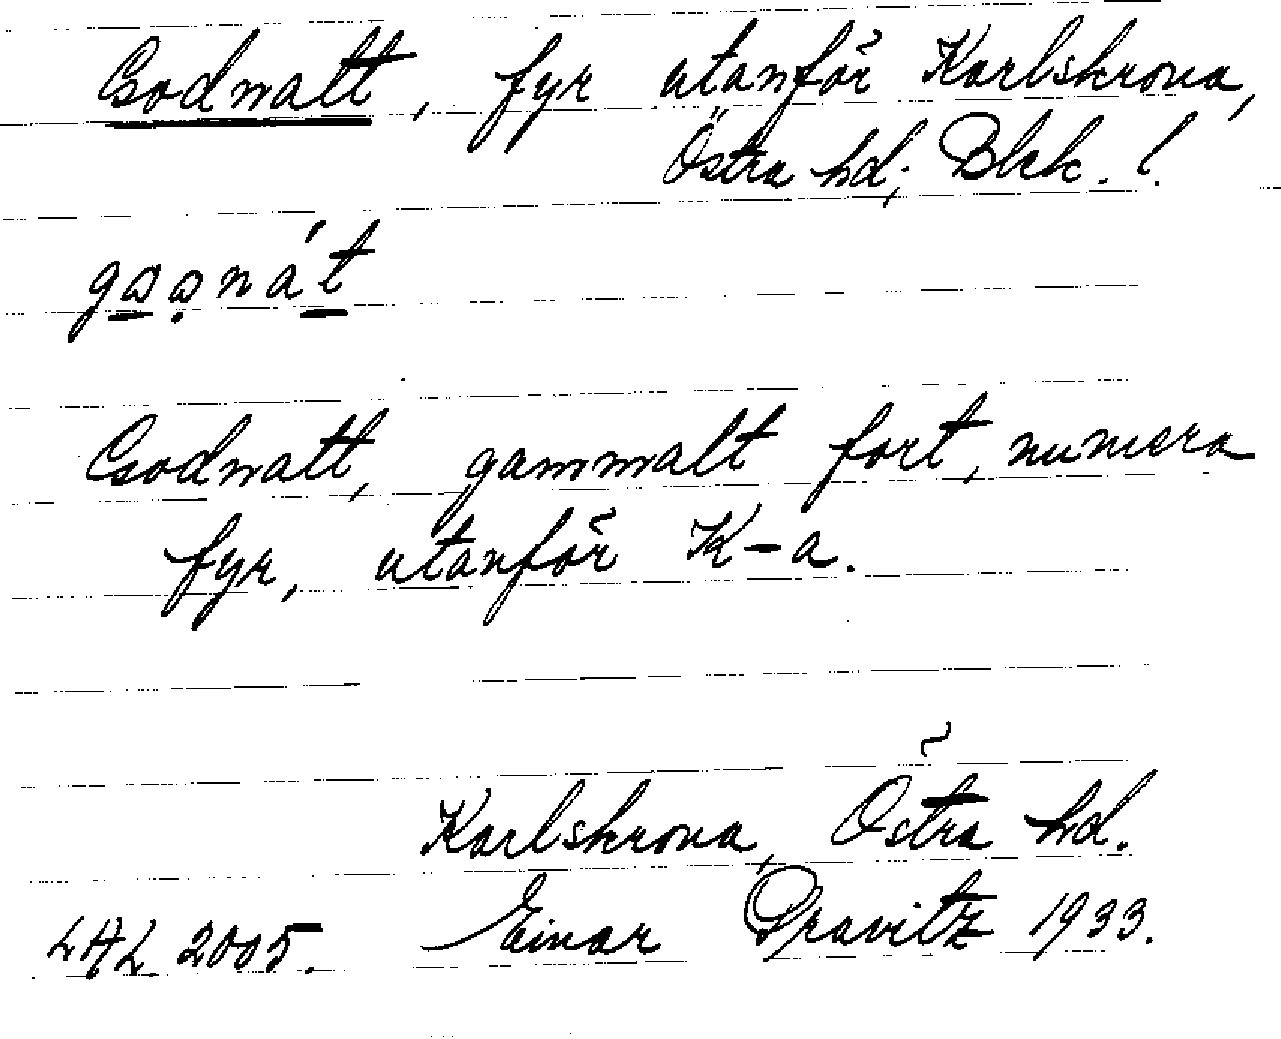 Godnatt, fyr utanför Karlskrona,
Östra hd; Blek. l.
Godnatt, gammalt fort, numera
fyr, utanför K-a.
Karlskrona, Östra hd.
LAL 2005. Einar Pravitz 1933.